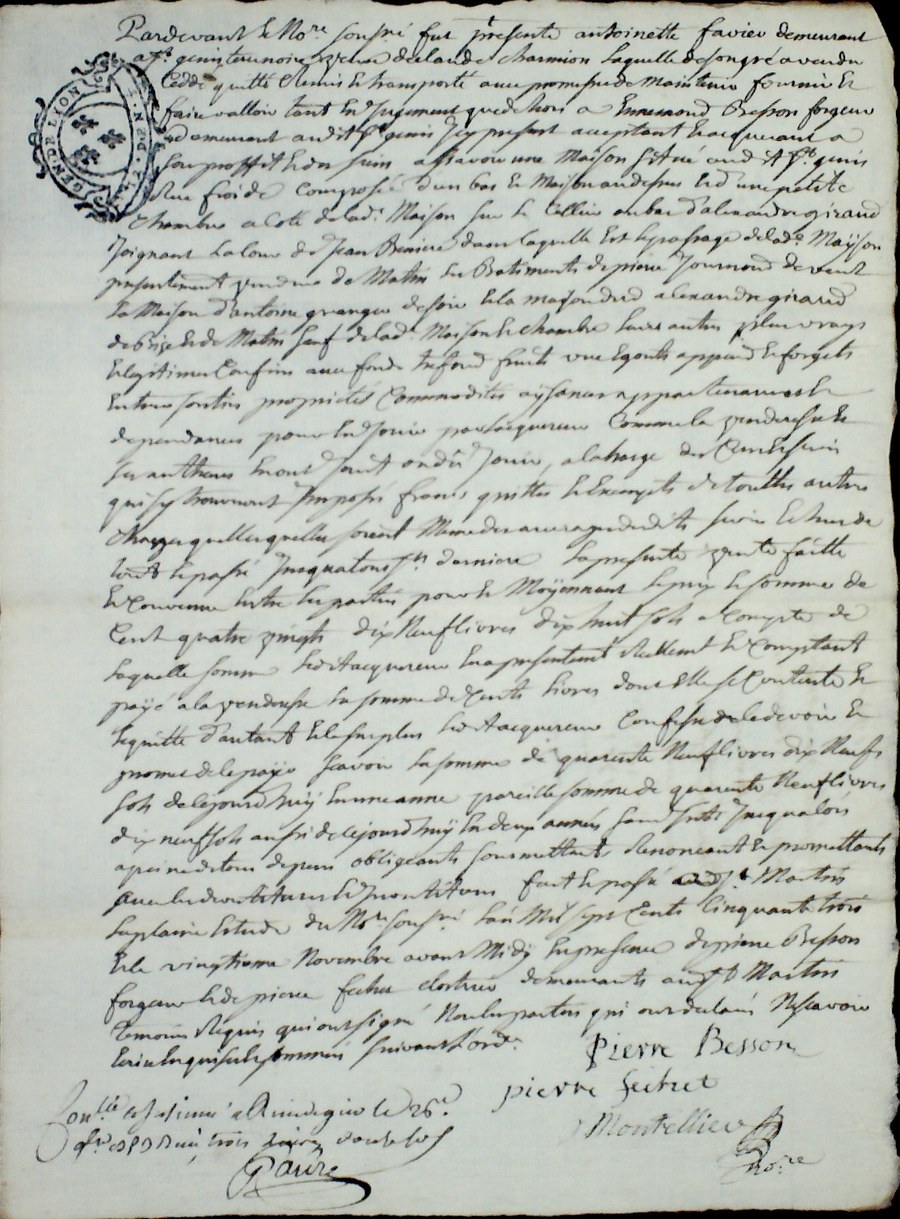 Pardevant le No.re sousné fut p.nte presente antoinette favier demeurant
a S.t genis terre noire veuve de claude charmion laquelle de son gré a vendu
cedde quitté remis et transporté avec promesse de maintenir fournir et
faire valloir tant en Jugement que dehors a Ennemond Besson forgeur
demeurant audit S.t genis Icy present acceptant et acquerant a
son proffit et des siens assavoir une Maison Sitüé audit S.t genis
rüe froide composée d'un bas et Maison au dessus et d'une petite
chambre a coté de lad.e Maison sur le cellier au bas d'alexandre giraud
Joignant la cour de Jean dans laquelle est le passage de lad.e Mayson
presentement vendue de Matin les Batiments de pierre Journoud de vent
la Maison d'antoine granger de soir et la maison dud alexandre girard
de bize et de Matin sauf de lad.e Maison et chambre leurs autres plus vrays
et legitimes Confins avec fonds trefond fruits vüe Egouts append et forgets
Entrées sorties proprietés Commodités aysances appartenances et
dependances pour En Joüir par lacquereur Comme la venderesse et
ses autheurs En ont Joüit ou dû Joüir, a la charge des Cens et servis
qui s'y trouveront Imposés francs quittes et Exempts de touttes autres
charges quelles quelles soient Meme des arrerages desdits servis et tous de
tout le passé Jusqua tous S.ts derniere la presente vente faitte
et Convenue Entre les parties pour et Moyennant le prix et somme de
Cent quatre vingts dix Neuf livres dix huit sols a Compte de
laquelle somme led.t acquereur En a presentement reellement et Comptant
payé a la venderesse la somme de Cents livres dont Elle se Contente et
le quitte d'autant et le surplus led.t acquereur Confesse de le devoir et
promet de le payer scavoir la somme de quarente Neuf livres dix Neufs
sols de ce jourd'huÿ En une année pareille somme de quarente Neuf livres
dix neuf sols aussi de ce jourd'huÿ En deux années sans Int.ts Jusqualors
a peine de tous depens obligeants soumettants Renoncant et promettants
avec les dev.titures et Investitures fait et passé aud S.t Martin
la plaine Etude du No.re sousné l'an Mil sept Cents Cinquante trois
et le vingtieme Novembre avant Midy En presence de pierre Besson
forgeur et de pierre fechet cloutier demeurants aud S.t Martin
temoins requis qui ont signé Non les parties qui ont declaré Ne scavoir
Ecrire Enquis et sommés suivant l'ord.e
Pierre Besson
pierre fechet
Montellier
No.re
Con.llé a Rivedegier le 26.e
9.bre 1753 trois livres douze sols
GEN DE LION